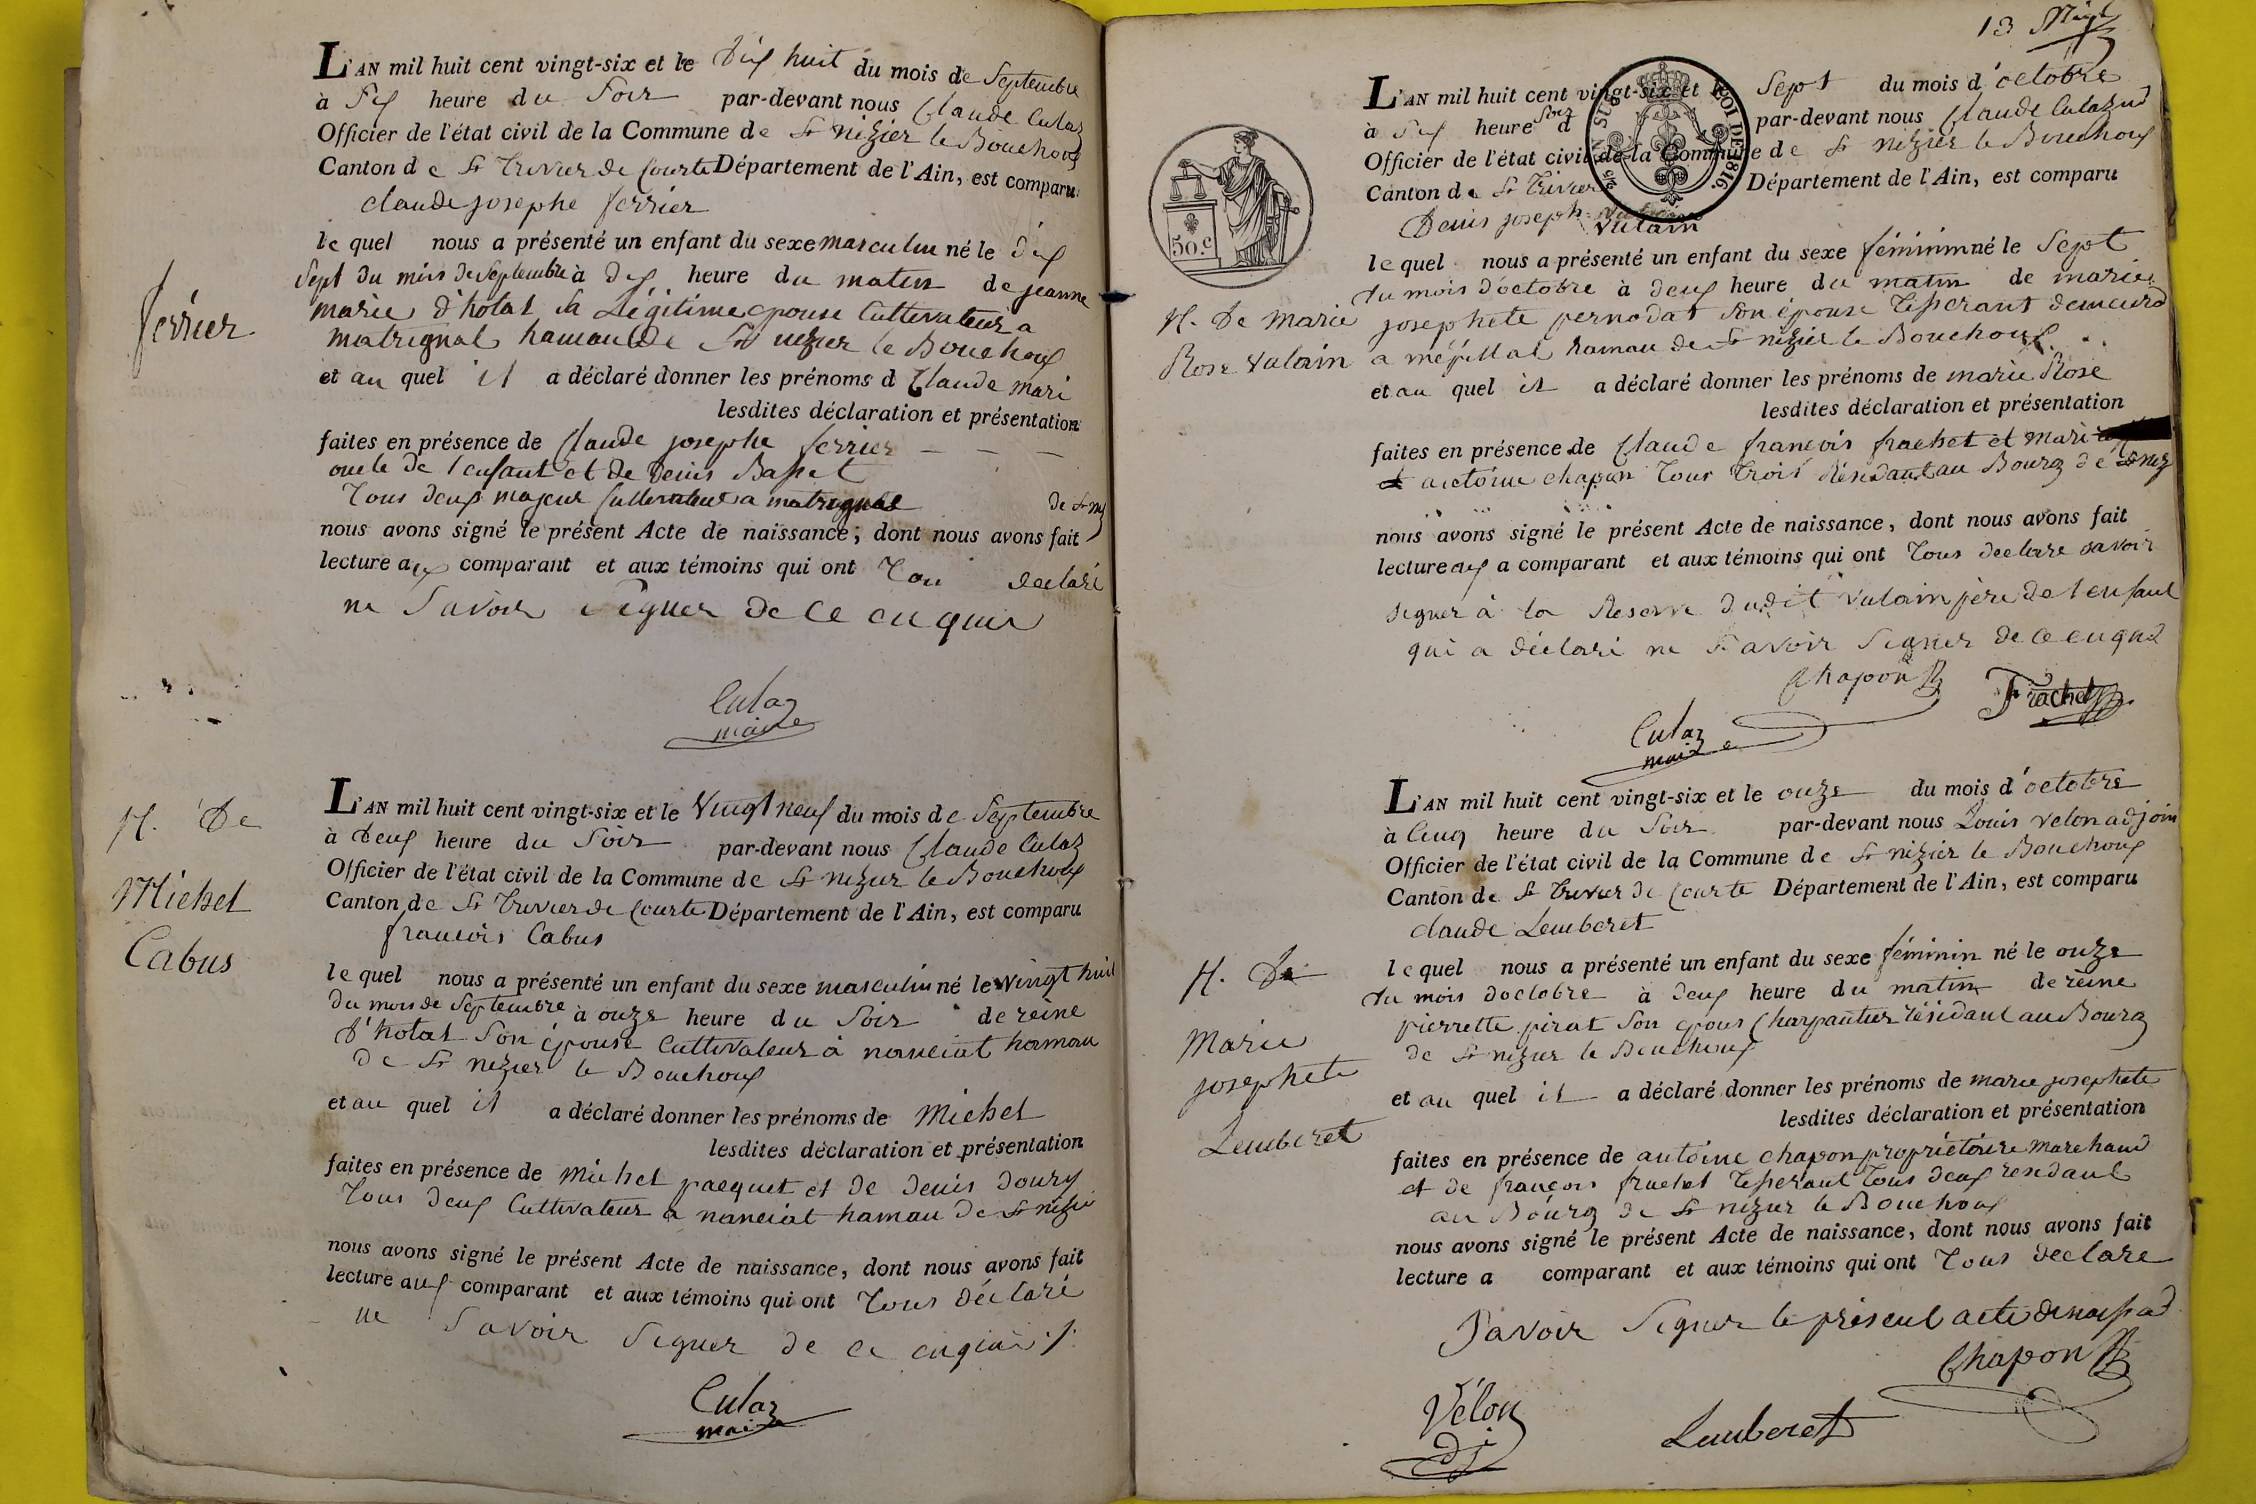 L'AN mil huit cent vingt-six et le dix huit du mois de Septembre
à six heure du Soir par-devant nous Claude Culaz
Officier de l'état civil de la Commune de St nizier le Bouchoux
Canton de St trivier de Courte Département de l'Ain, est comparu
claude josephe ferrier
le quel nous a présenté un enfant du sexe masculin né le dix
sept du mois de Septembre à dix heure du matin de jeanne
marie d'hotat sa Légitime epouse Cultivateur a
matrignat hamau de St nizier le Bouchoux
et au quel il a déclaré donner les prénoms d Claude mari
lesdites déclaration et présentation
faites en présence de Claude josephe ferrier
oncle de l'enfant et de Denis Basset
Tous deux majeur Cultivateur a matrignat de St niz
nous avons signé le présent Acte de naissance, dont nous avons fait
lecture aux comparant et aux témoins qui ont Tou declaré
ne Savoir Signer de ce enquis
férrier
Culaz
maire
N. De
Michel
Cabus
L'AN mil huit cent vingt-six et le Vingt neuf du mois de Septembre
à Deux heure du Soir par-devant nous Claude Culaz
Officier de l'état civil de la Commune de St nizier le Bouchoux
Canton de St trivier de Courte Département de l'Ain, est comparu
françois Cabus
le quel nous a présenté un enfant du sexe masculin né le vingt huit
du mois de Septembre à onze heure du Soir de rèine
d'hotat Son épouse Cultivateur à nanciat hamau
de St nizier le Bouchoux
et au quel il a déclaré donner les prénoms de Michel
lesdites déclaration et présentation
faites en présence de Michel pacquet et de denis doury
Tous deux Cultivateur a nanciat hamau de St nizie
nous avons signé le présent Acte de naissance, dont nous avons fait
lecture aux comparant et aux témoins qui ont Tous déclaré
ne Savoir Signer de ce enquis
Culaz
maire
13
50.c
EN SUS
LOI DE 1816.
L'AN mil huit cent vingt-six et Sept du mois d'octobre
à six heure d Soir par-devant nous Claude Culaz
Officier de l'état civil de la Commune de St nizier le Bouchoux
Canton de St trivier Département de l'Ain, est comparu
Denis joseph vulain
le quel nous a présenté un enfant du sexe féminin né le Sept
du mois d'octobre à deux heure du matin de marie
josephete pernodat Son épouse Tisserant demeurd
a mépillat hamau de St nizier le Bouchoux
et au quel il a déclaré donner les prénoms de marie Rose
lesdites déclaration et présentation
faites en présence de Claude françois frachet et
antoine chapon Tous Trois Résidant au Bourg de St niz
nous avons signé le présent Acte de naissance, dont nous avons fait
lecture aux a comparant et aux témoins qui ont Tous declare savoir
signer à la Reserve dudit vulain père de l'enfant
qui a déclaré ne Savoir Signer de ce enquis
N. De Marie
Rose Vulain
Chapon
Frachet
Culaz
maire
L'AN mil huit cent vingt-six et le onze du mois d'octobre
à Cinq heure du Soir par-devant nous Louis velon adjoin
Officier de l'état civil de la Commune de St nizier le Bouchoux
Canton de St trivier de Courte Département de l'Ain, est comparu
claude Lemberet
le quel nous a présenté un enfant du sexe féminin né le onze
du mois doctobre à deux heure du matin de rèine
pierrette pirat Son epous Charpantier résidant au Bourg
de St nizier le Bouchoux
et au quel il a déclaré donner les prénoms de marie josephete
lesdites déclaration et présentation
faites en présence de antoine chapon propriétaire Marchand
et de françois frachet Tisserant Tous deux residant
au Bourg de St nizier le Bouchoux
nous avons signé le présent Acte de naissance, dont nous avons fait
lecture a comparant et aux témoins qui ont Tous declare
Savoir Signer le présent acte de
N. De
Marie
josephete
Lemberet
Chapon
Vélon
dj
Lemberet